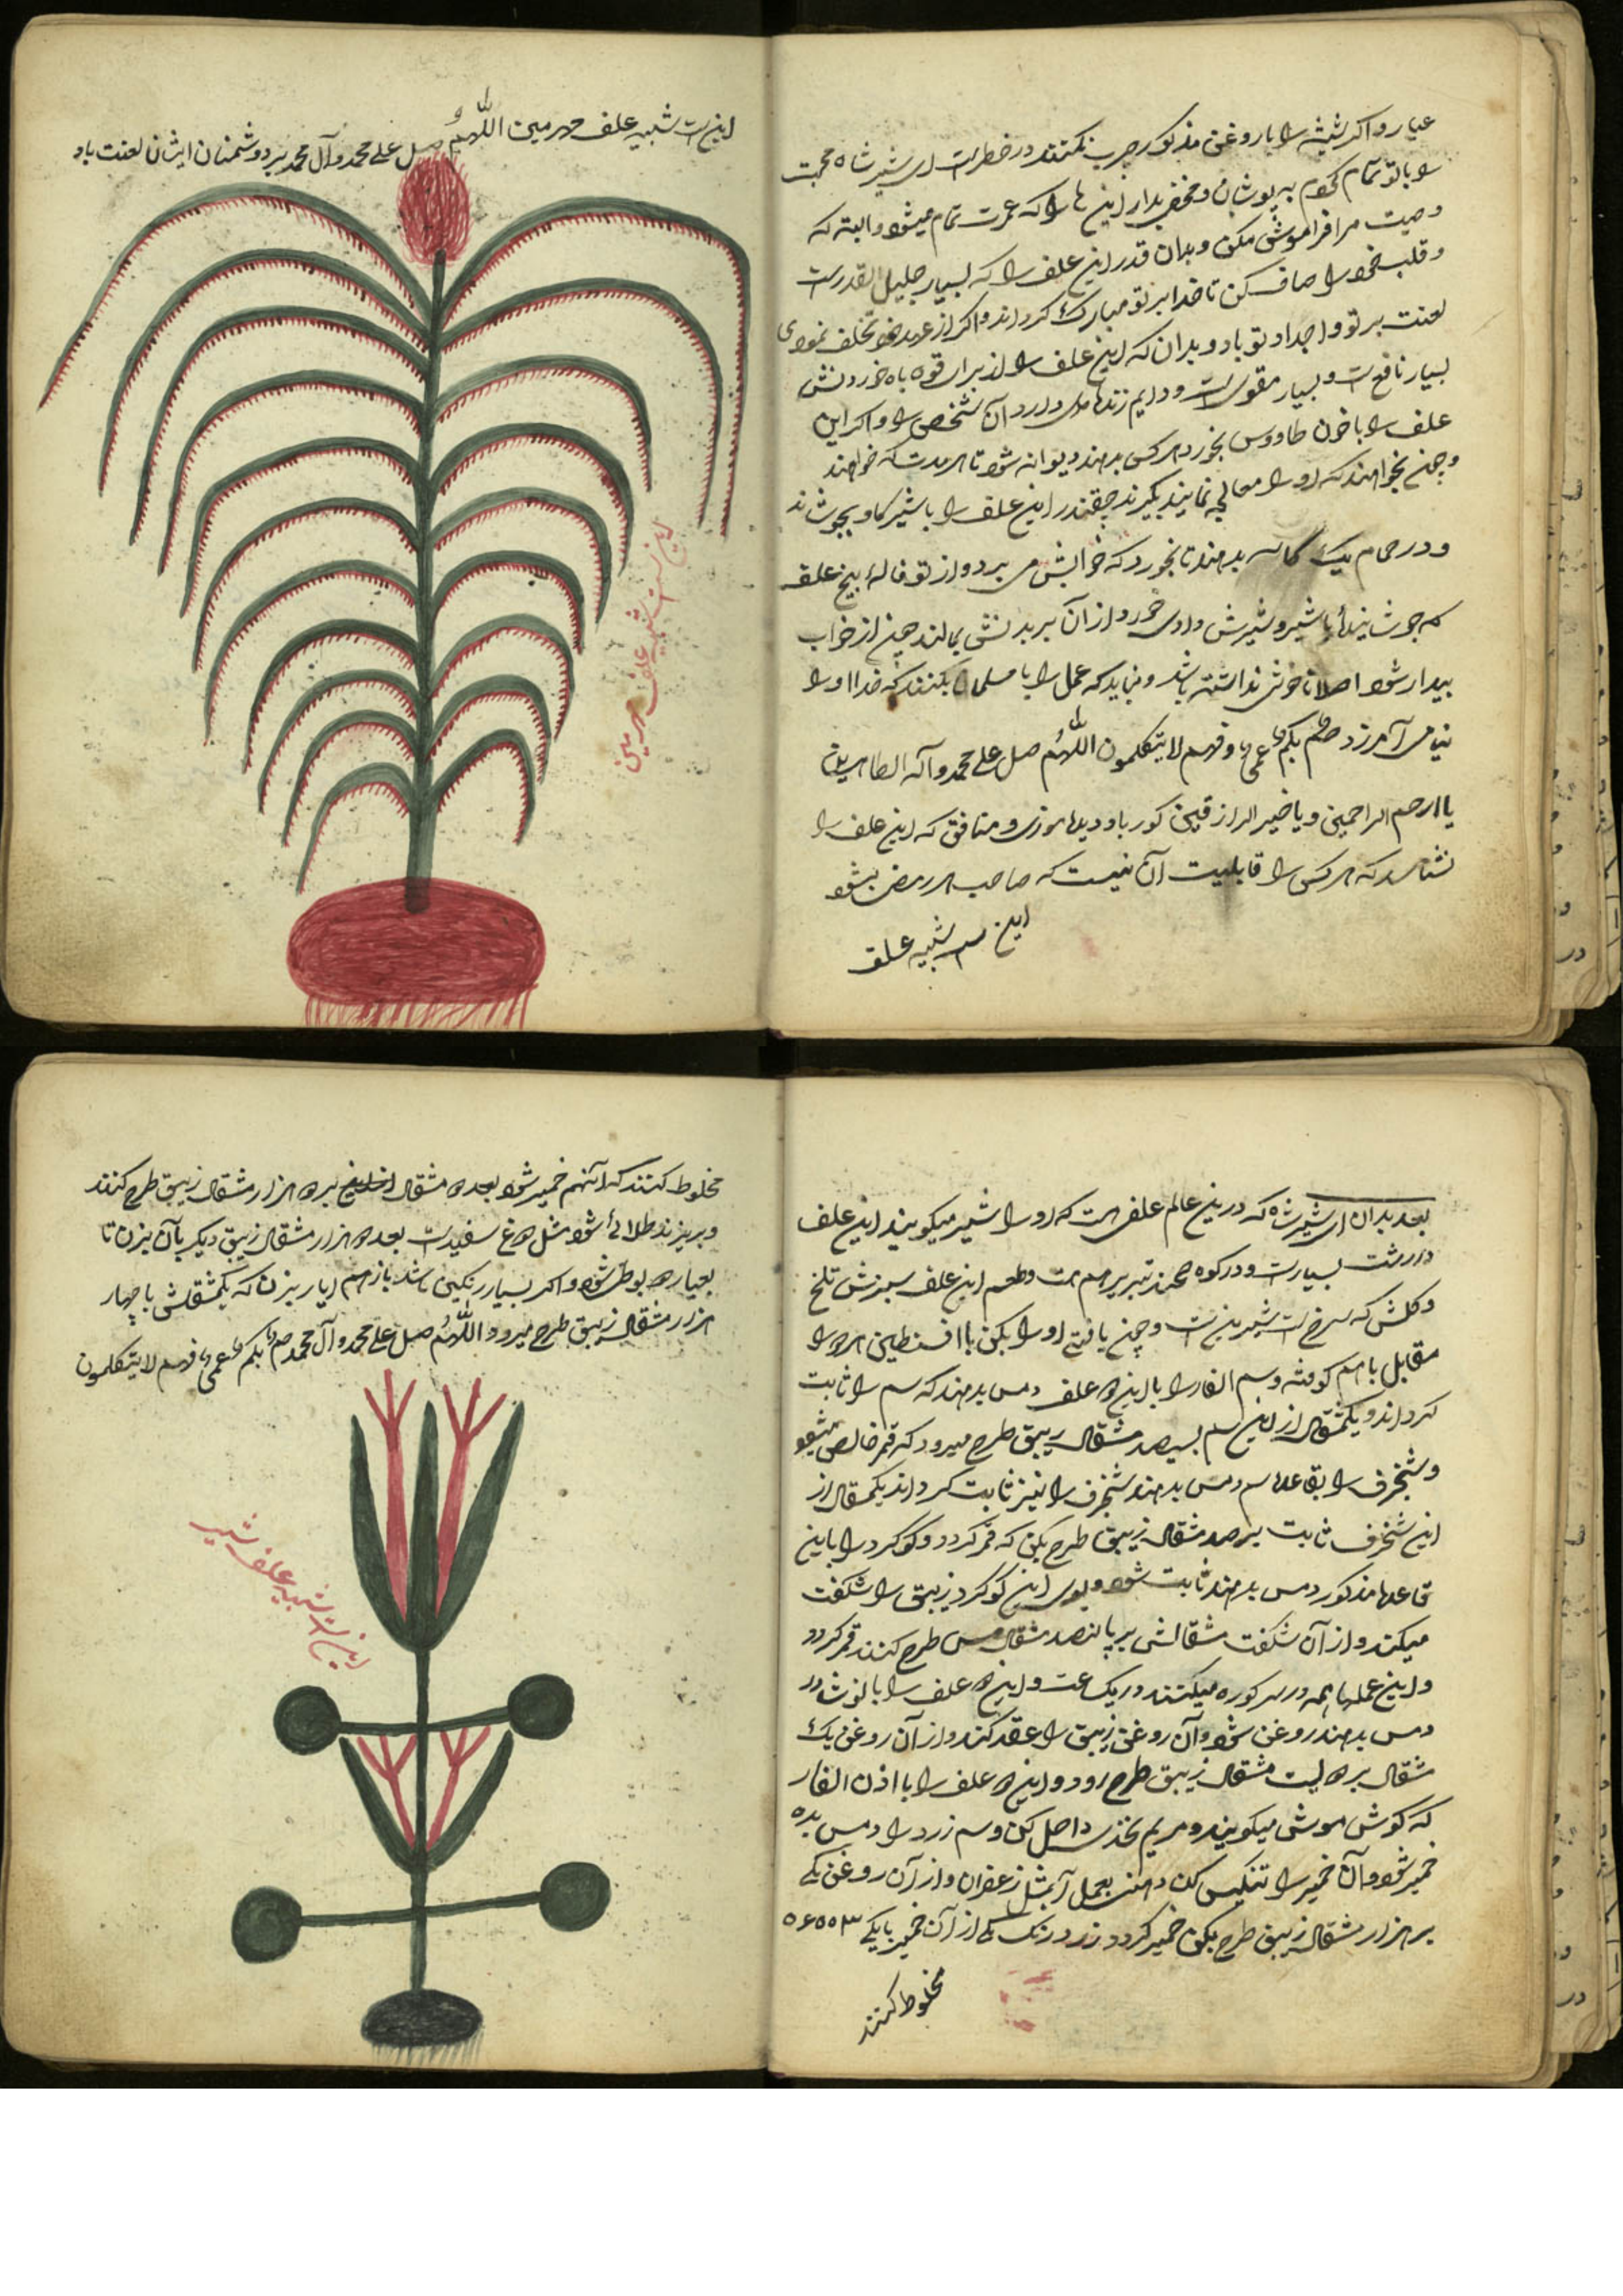 عیار و اکر شیشه را با روغن مذکور چرب نکنند در خطر است ای شیر شاه محبت
را با تو تمام کردم به پوشان و مخفی بدار این ها را که عمرت تمام میشود و البته که
وصیت مرا فراموش مکن و بدان قدر این علف را که بسیار جلیل القدر است
و قلب خود را صاف کن تا خدا بر تو مبارک کرداند و اکر از عهد خود تخلف نمودی
لعنت بر تو و اجداد تو باد و بدان که این علف را از برای قوه باه خوردنش
بسیار نافع است و بسیار مقوی است و دایم زنده دارد آن شخص را و اکر این
علف را با خون طاووس بخورد هر کس بدهند دیوانه شود تا هر مدت که خواهند
و چون بخواهند که او را معالجه نمایند بکیرند چغندر این علف را با شیر کاو بجوشانند
و در حمام یک کاسه بدهند تا بخورد که خوابش می برد و از تو فاله بیخ علف
که جوشانیده با شیر و شیرش دادی خورد و از آن بر بدنش بمالند چون از خواب
بیدار شود اصلا ناخوشی نداشته باشد و نباید که عمل را با مسلمان بکنند که خدا او را
نیامرزد صم بکم عمی و فهم لا یتکلمون اللهم صل علی محمد و آله الطاهرین
یا ارحم الراحمین و یا خیر الرازقین کور باد دیده موذی و منافق که این علف را
نشناسد که هر کس را قابلیت آن نیست که صاحب ارض بشود
این است شبیه علف
این است شبیه علف حرمین اللهم صل علی محمد و آل محمد بر دوشمنان ایشان لعنت باد
این است شبیه علف حرمین
بعد بدان ای شیر شاه که در این عالم علفی هست که او را شیر میکویند این علف
در رشت بسیار است و در کوه سهند تبریز هم هست و طعم این علف سبزش تلخ
و کلش که سرخ است شیرین است و چون یافتی او را بکن با افسنطین هر دو را
مقابل با هم کوفته و سم الفار را با این ده علف دمس بدهند که سم را ثابت
کرداند و یکمثقال از این سم بسیصد مثقال زیبق طرح میرود که قمر خالص میشود
و شنجرف را بقاعده سم دمس بدهند شنجرف را نیز ثابت کرداند یکمثقال از
این شنجرف ثابت بر صد مثقال زیبق طرح بکن که قمر کردد و کوکرد را باین
قاعده مذکور دمس بدهند ثابت شود و بوی این کوکرد زیبق را شکفت
میکند و از آن شکفت مثقالش بر پانصد مثقال مس طرح کنند قمر کردد
و این عملها همه در سر کوره میکنند در یک ساعت و این ده علف را با نوشادر
دمس بدهند روغن شود و آن روغن زیبق را عقد کند و از آن روغن یک
مثقال بر دویست مثقال زیبق طرح رود و این ده علف را با اذن الفار
که کوش موش میکویند و مریم نخذی داخل کن و سم زرد را دمس بده
خمیر شود و آن خمیر را تنکیس کن دهنت بعمل آید مثل زعفران و از آن روغن یکی
بر هزار مثقال زیبق طرح بکن خمیر کردد زرد رنک یکی از آن خمیر با یکی
مخلوط کنند
مخلوط کنند که آنهم خمیر شود بعد ده مثقال بر ده هزار مثقال زیبق طرح کنند
و بریزند طلائی شود مثل داغ سفید است بعد ده هزار مثقال زیبق دیکر بآن بزن تا
بعیار ده بوطی شود و اکر بسیار رنکین باشد باز هم ایار بزن که یکمثقالش با چهار
هزار مثقال زیبق طرح میرود اللهم صل علی محمد و آل محمد صم بکم عمی فهم لا یتکلمون
این است شبیه علف شیر